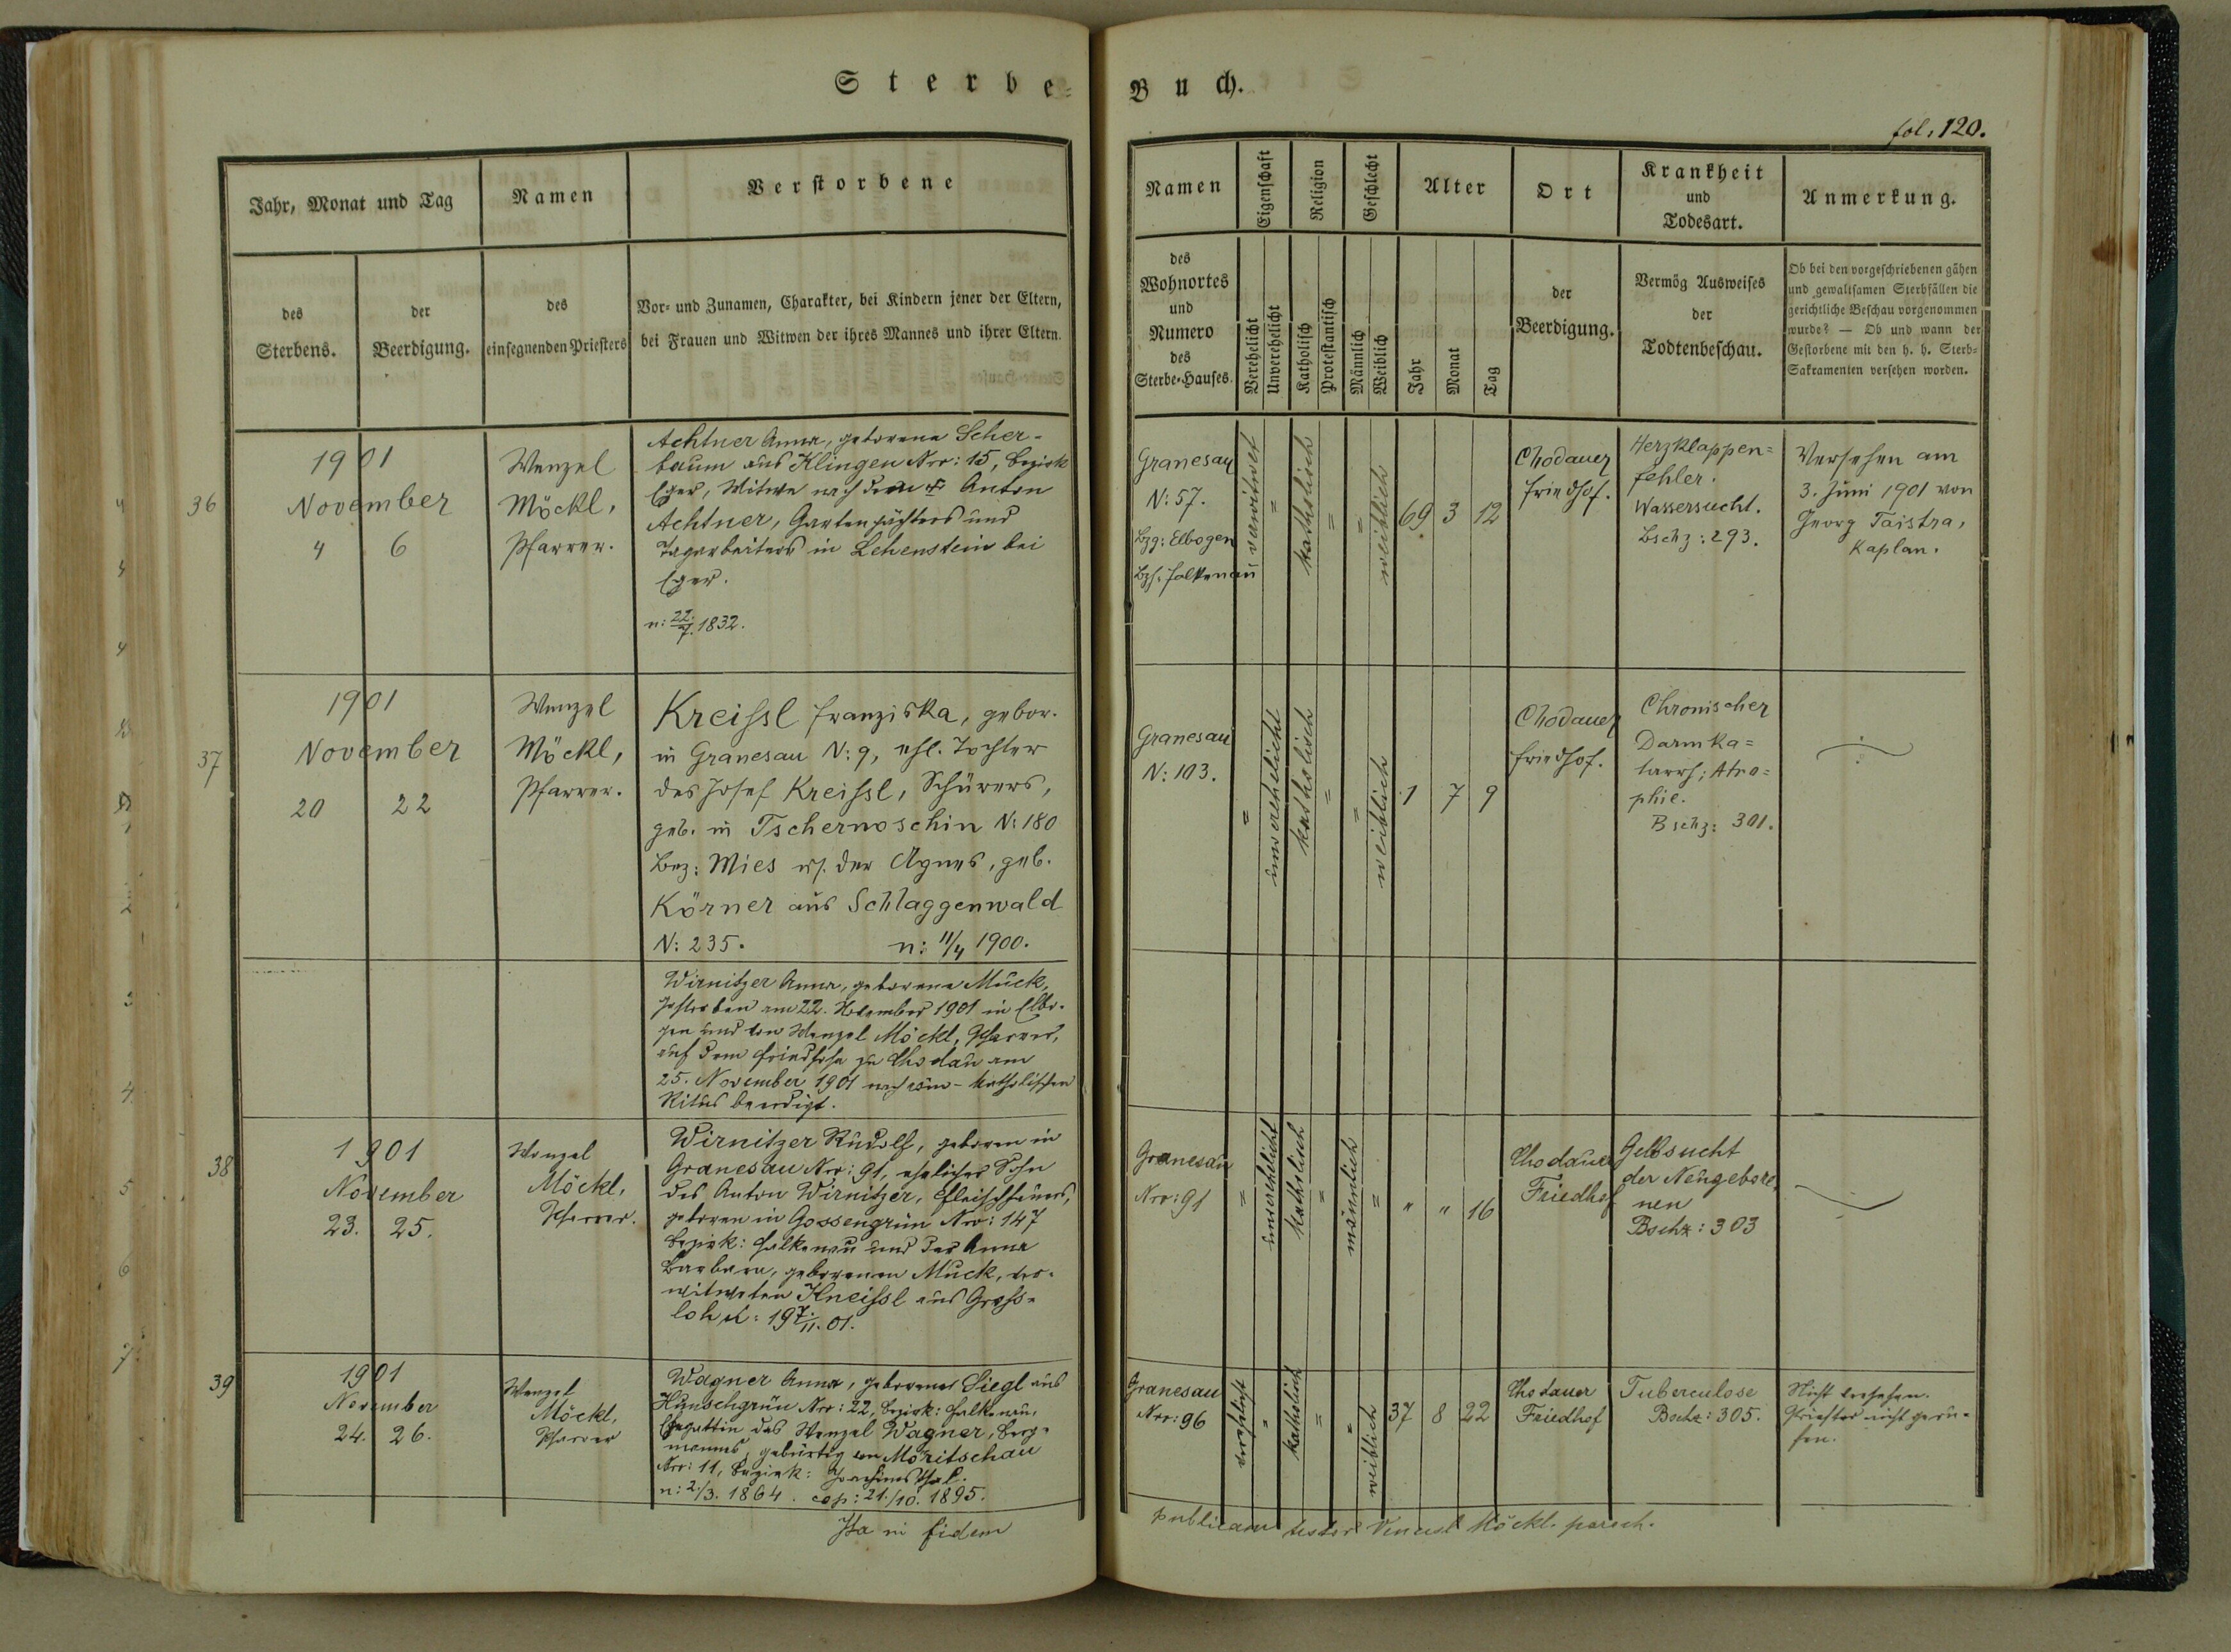 Sterbe-
Buch.
fol. 120.
Jahr, Monat und Tag
Namen
Verstorbene
des
Sterbens.
der
Beerdigung.
des
einsegnenden Priesters
Vor- und Zunamen, Charakter, bei Kindern jener der Eltern,
bei Frauen und Witwen der ihres Mannes und ihrer Eltern.
Namen
Eigenschaft
Religion
Geschlecht
Alter
Ort
Krankheit
und
Todesart.
Anmerkung.
des
Wohnortes
und
Numero
des
Sterbe-Hauses.
Verehelicht
Unverehelicht
Katholisch
Protestantisch
Männlich
Weiblich
Jahr
Monat
Tag
der
Beerdigung.
Vermög Ausweises
der
Todtenbeschau.
Ob bei den vorgeschriebenen gähen
und gewaltsamen Sterbfällen die
gerichtliche Beschau vorgenommen
wurde? — Ob und wann der
Gestorbene mit den h. h. Sterb-
Sakramenten versehen worden.
36
1901
November
4 6
Wenzel
Möckl,
Pfarrer.
Achtner Anna, geborene Scher-
baum aus Klingen Nro: 15, Bezirk
Eger, Witwe nach dem † Anton
Achtner, Gartenpächters und
Tagarbeiters in Lehenstein bei
Eger.
n: 22./7. 1832.
Granesau
N: 57.
Bzg: Elbogen
Bzh: Falkenau
verwitwet
=
katholisch
=
=
weiblich
69 3 12
Chodauer
Friedhof.
Herzklappen=
fehler.
Wassersucht.
Bschz: 293.
Versehen am
3. Juni 1901 von
Georg Taistra,
Kaplan.
37
1901
November
20 22
Wenzel
Möckl,
Pfarrer.
Kreissl Franziska, gebor.
in Granesau N: 9, ehl. Tochter
des Josef Kreissl, Schürers,
geb. in Tschernoschin N: 180
Bez: Mies u. der Agnes, geb.
Körner aus Schlaggenwald
N: 235. n: 11/4 1900.
Granesau
N: 103.
=
unverehelicht
katholisch
=
=
weiblich
1 7 9
Chodauer
Friedhof.
Chronischer
Darmka=
tarrh; Atro=
phie.
Bschz: 301.
Wirnitzer Anna, geborene Mück,
gestorben am 22. November 1901 in Elbo-
gen und von Wenzel Möckl, Pfarrer,
auf dem Friedhofe zu Chodau am
25. November 1901 nach röm-katholischem
Ritus beerdigt.
38
1901
November
23. 25.
Wenzel
Möckl,
Pfarrer.
Wirnitzer Rudolf, geboren in
Granesau Nro: 91, ehelicher Sohn
des Anton Wirnitzer, Fleischhauers,
geboren in Gossengrün Nro: 147
Bezirk: Falkenau und der Anna
Barbara, geborenen Muck, ver-
witweten Kneissl aus Gross-
loh
Granesau
Nro: 91
=
unverehelicht
katholisch
=
männlich
=
" " 16
Chodauer
Friedhof
Gelbsucht
der Neugebore-
nen
Bschz: 303
39
1901
November
24. 26.
Wenzel
Möckl,
Pfarrer
Wagner Anna, geborene Siegl aus
Hunschgrün Nro: 22, Bezirk: Falkenau,
Ehegattin des Wenzel Wagner, Berg-
mannes, gebürtig von Möritschau
Nro: 11, Bezirk: Joachimsthal.
n: 2./3. 1864. cop: 21./10. 1895.
Granesau
Nro: 96
verehelicht
=
katholisch
=
=
weiblich
37 8 22
Chodauer
Friedhof
Tuberculose
Bschz: 305.
Nicht versehen.
Priester nicht geru-
fen.
Ita in fidem
publicam testor Vencesl Möckl. paroch.